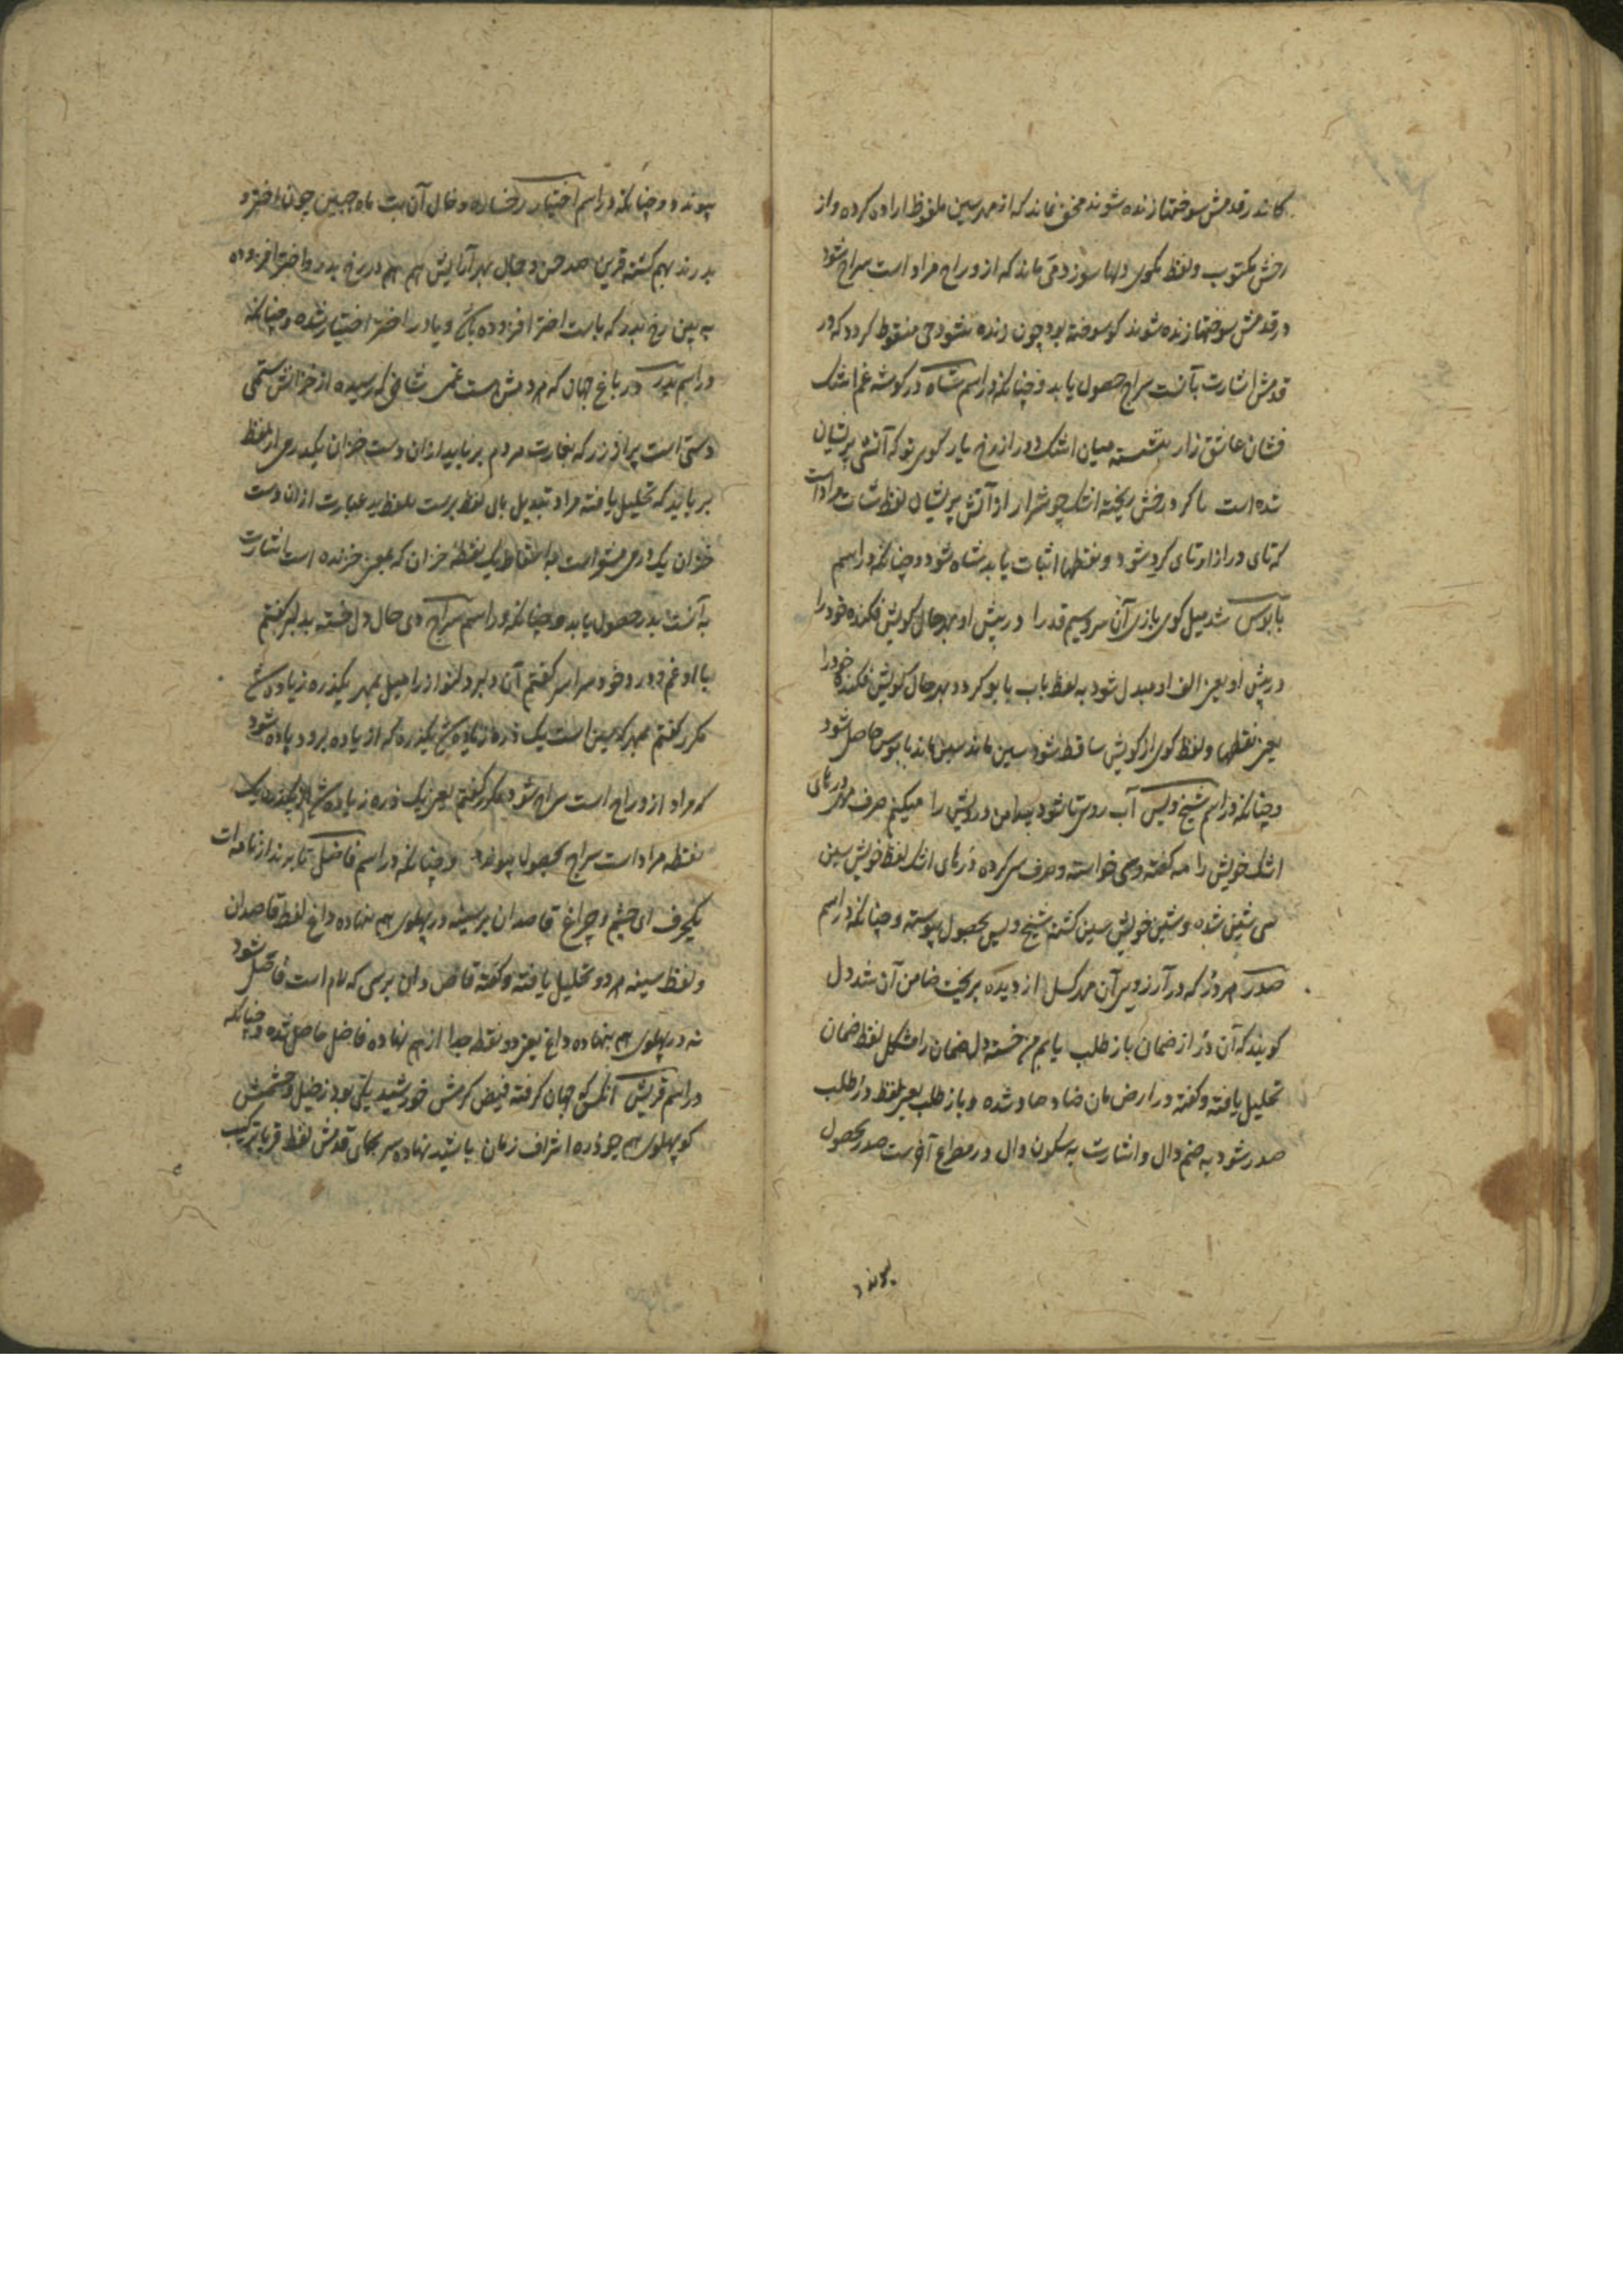 کاندر قدمش سوختها زنده شوند مخفی نماند که از مهر سین ملفوظ اراده کرده و از
رخش مکتوب و لفظ بگوی دلها سوزد می ماند که از و راج مراد است سراج شود
در قدمش سوختها زنده شوند کو سوخته بود چون زنده شود جی منقوط کردد که در
قدمش اشارت بآنست سراج حصول یابد و چنانکه در اسم شاه در کوشه غم اشک
فشان عاشق زار بنشسته میان اشک دور از رخ یار کوی تو که آتش پریشان
شده است تا کرد رخش ریخته اشک چو شرار از آتش پریشان لفظ شات مراد است
که تای دراز او تای کرد شود و نقطها اثبات یابد شاه شود و چنانکه در اسم
بابوس شد میل کوی بازی آن سرو سیم قد را در پیش او بهر حال کویش فکنده خود را
در پیش او یعنی الف او مبدل شود به لفظ باب بابو کردد بهر حال کویش فکنده خود را
یعنی نقطها و لفظ کوی از کویش ساقط شود سین ماند بابوس حاصل شود
و چنانکه در اسم شیخ ویس آب روی تا شود بدامن درویش را میکنم صرف مهر در پای
اشک خویش را مه کفته و سی خواسته و صرف سی کرده در پای اشک لفظ خویش سین
سی شین شده و شین خویش سین کشته شیخ ویس بحصول پیوسته و چنانکه در اسم
صدر هر در که در آرزوی آن مهر کسل از دیده بریخت ضامن آن شد دل
کویند که آن در از ضمان باز طلب یابم من خسته دل ضمان را مشکل لفظ ضمان
تحلیل یافته و کفته در ارض مان ضاد صاد شده و باز طلب یعنی لفظ در طلب
صدر شود به ضم دال و اشارت به سکون دال در مصراع آخرست صدر بحصول
پیوندد
پیوندد و چنانکه در اسم اختیار رخساره و خال آن بت ماه جبین چون اختر و
بدرند بهم کشته قرین صد حسن و جمال بهر آرایش هم هم در رخ بدر و اختر افزوده
به بین رخ بدر که باست اختر افزوده یای و یا در اختر اختیار شده و چنانکه
در اسم بدر در باغ جهان که مردمش است غمی شاخی که رسیده از خزانش ستمی
دستی است پر از زر که بغارت مردم بر باید ازان دست خزان یک درمی از لفظ
بر باید که تحلیل یافته مراد تبدیل بای لفظ برست بلفظ ید عبارت ازان دست
خزان یک درمی مشو است به اسقاط یک نقطه خزان که بمعنی خزنده است اشارت
به آنست بدر حصول یابد و چنانکه در اسم سراج دی حال دل خسته بدلبر کفتم
با او غم و درد خود سراسر کفتم آن دلبر دلنواز را میل بمهر یک ذره زیاده شد
مکرر کفتم مهر که سین است یک ذره زیاده یک ذره که از یاده برود یاده شود
که مراد از و راج است سراج شود مکرر کفتم یعنی یک ذره زیاده یک ذره یک
نقطه مراد است سراج بحصول پیوندد و چنانکه در اسم فاضل تا برند از نامه ات
یکحرف ای چشم و چراغ قاصدان بر سینه در پهلوی هم نهاده داغ لفظ قاصدان
و لفظ سینه هر دو تحلیل یافته و کفته قاص دان برسی که لام است قاصل شود
نه در پهلوی هم نهاده داغ یعنی دو نقطه جدا از هم نهاده فاضل حاصل شده و چنانکه
در اسم قریش آنکس کو جهان کرفته فیض کرمش خورشید یکی بود ز خیل و حشمش
کو پهلوی هم چو ذره اشراف زمان باشند نهاده سر بجای قدمش لفظ قر با ترکیب